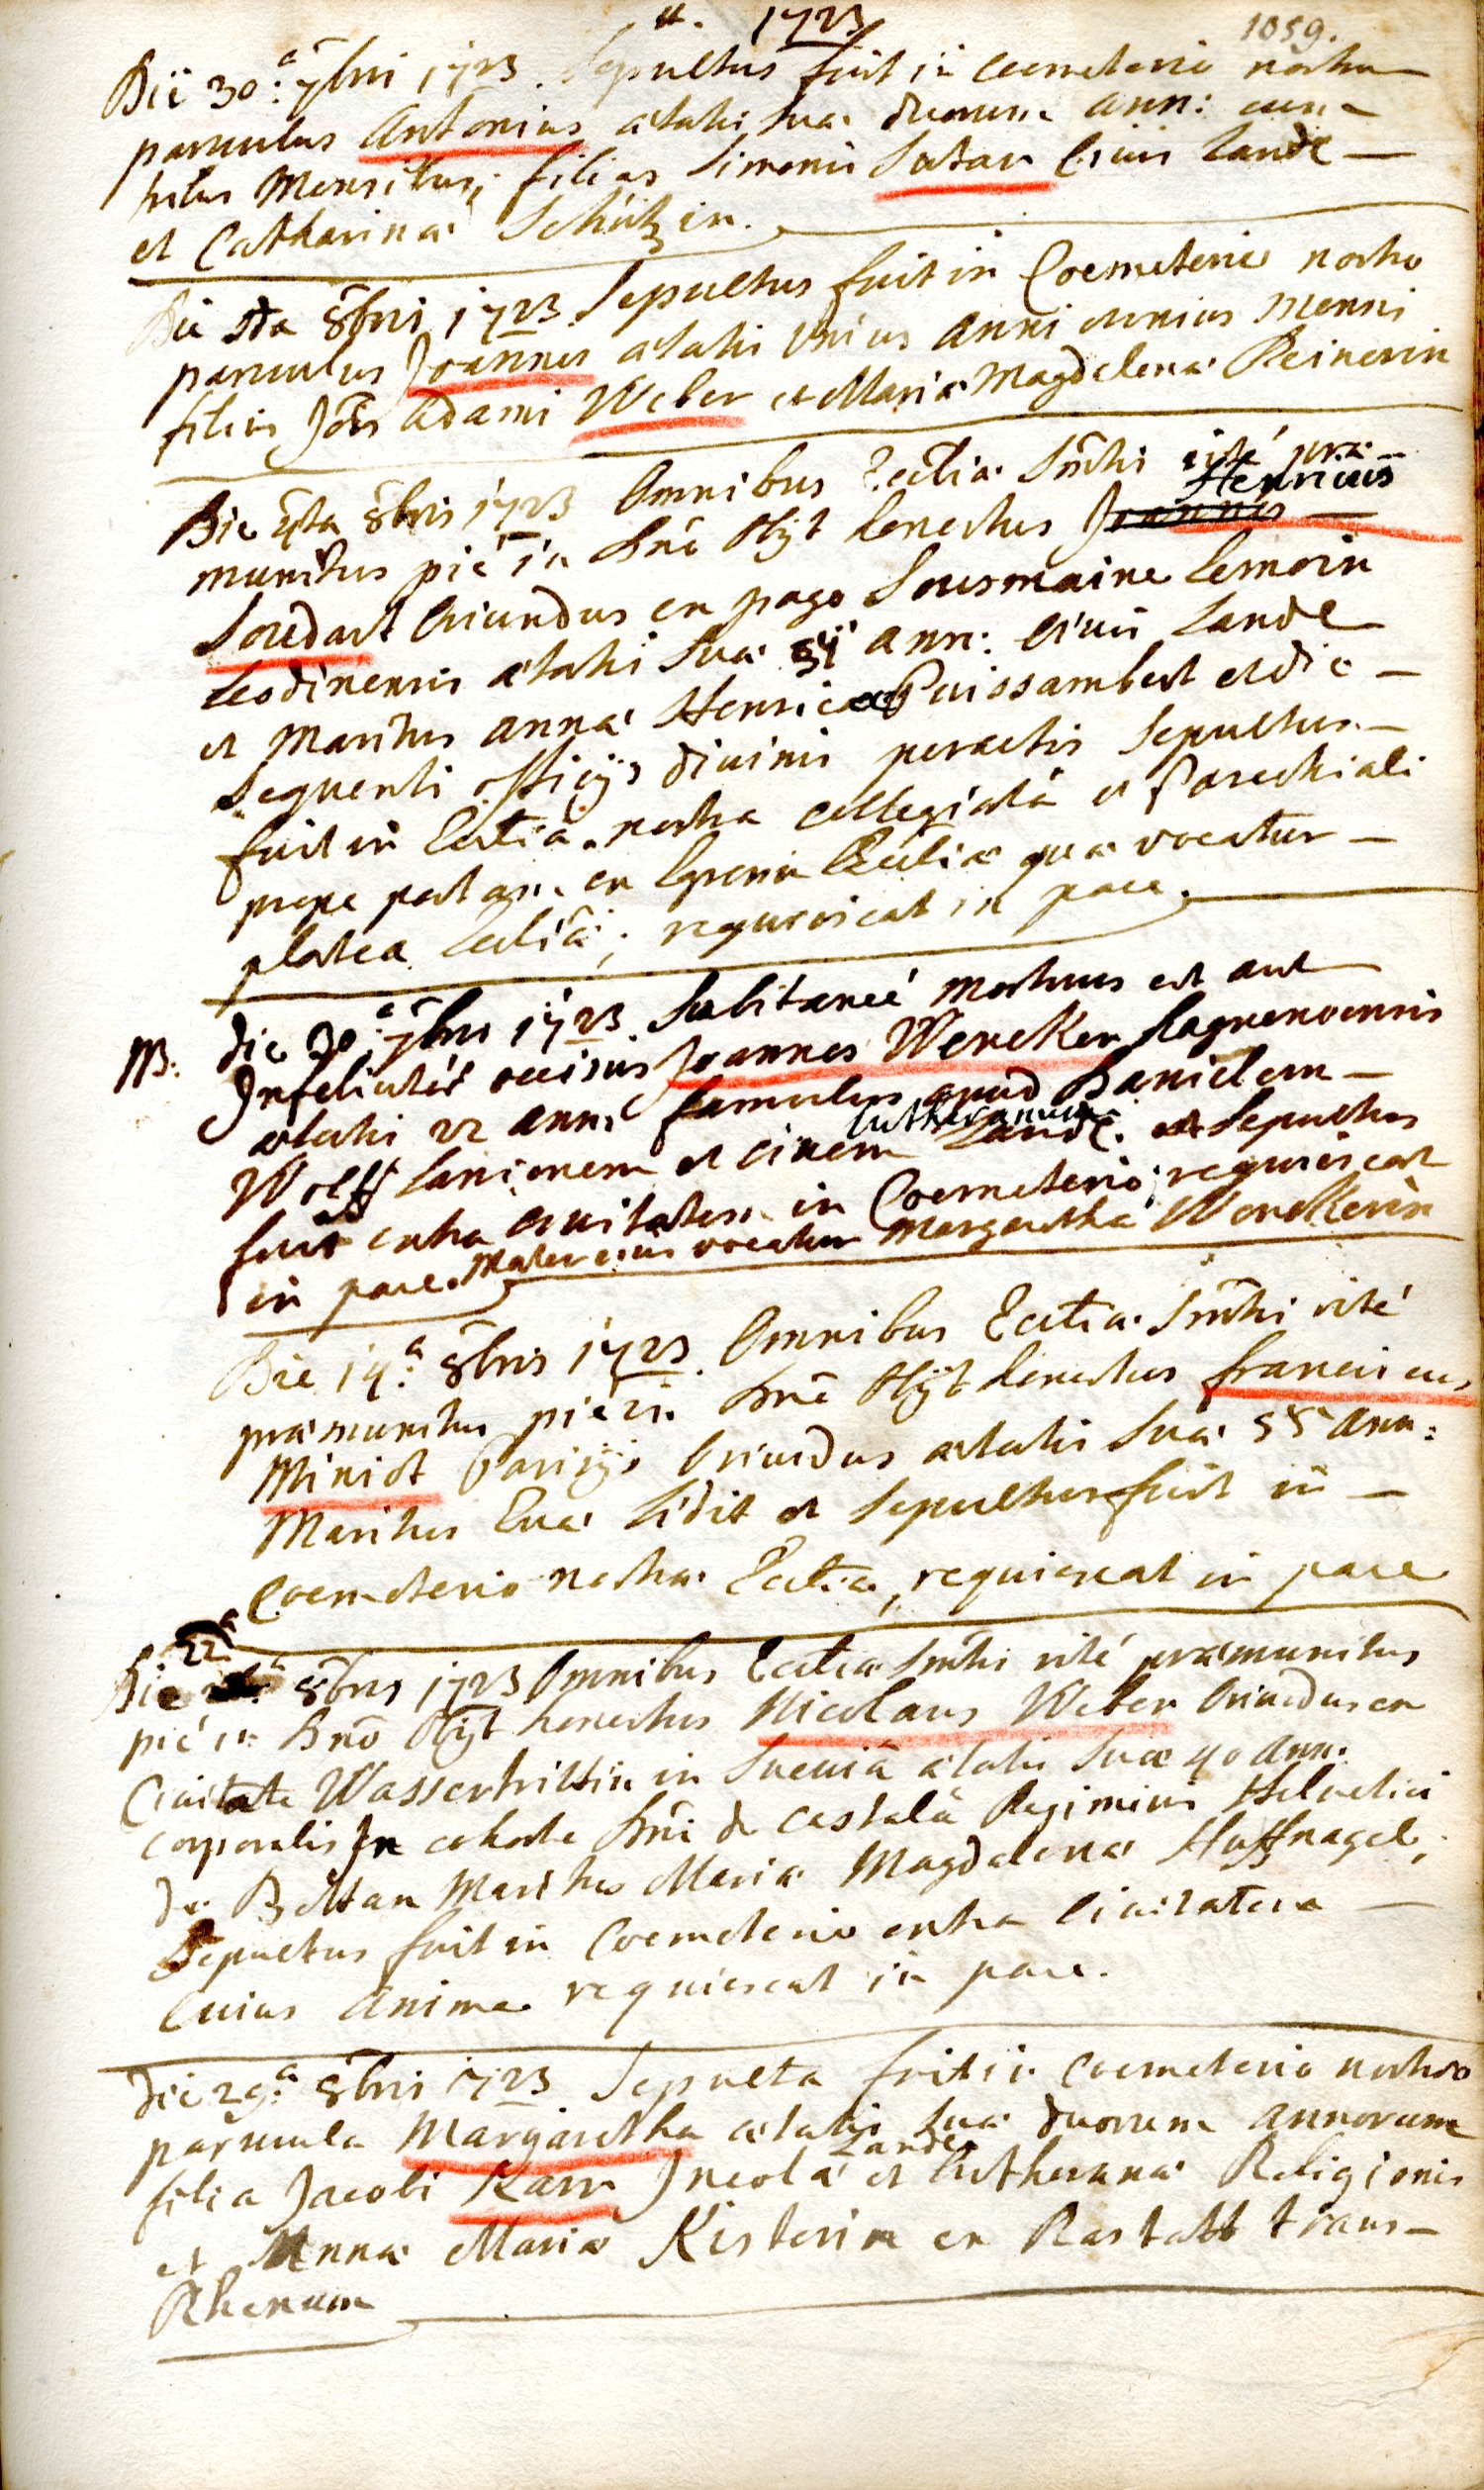 a. 1723
1059.
Die 30:a 7bri 1723. Sepultus fuit in Coemeterio nostro
parvulus Antonius ætatis suæ duorum ann: cum
tribus Mensibus, filius Simonis Satar Civis Lande
et Catharinæ Schützin.
Die 8bri 1723. Sepultus fuit in Coemeterio nostro
parvulus Joannes ætatis unius anni et unius Mensis
filius Jois Adami Weber et Mariæ Magdelenæ Reinerin
Die 4ta 8bris 1723 Omnibus Ecctiæ Smtis rité præ-
munitus pié in Dnō Obijt honestus Joannes Henricus
Soudart Oriundus ex pago Sousmaine Lemoin
Leodinensis ætatis suæ ann: Civis Lande
et Maritus annæ Henricæ Puissambert et die
sequenti officijs divinis peractis Sepultus
fuit in Ecctia nostra Collegiatâ et Parochiali
prope portam ex Ecctiæ quæ vocatur
platea Ecctiæ; requiescat in pace.
NB: die 30:a 7bris 1723. Subitaneé Mortuus est aut
Infeliciter occisus Joannes Wencker Hagnenoensis
ætatis 22 ann: famulus apud Danielem
Wolff Lanionem et Civem Lutheranum Lande. et Sepultus
fuit extra Civitatem in Coemeterio; requiescat
in pace. Mater eius vocatur Margaretha Wenckerin
Die 14:a 8bris 1723. Omnibus Ecctiæ Smtis rité
præmunitus pié in Dnō Obijt honestus franciscus
Miniot Parisijs Oriundus ætatis suæ 55 ann:
Maritus Evæ Lidit et Sepultus fuit in
Coemeterio nostræ Ecctiæ, requiescat in pace
Die 22a 8bris 1723 Omnibus Ecctiæ Smtis rité præmunitus
pié in Dnō Obijt honestus Nicolaus Weber Oriundus ex
Civitate Wassertrittin in Sueviâ ætatis suæ 40 ann.
corporalis In cohorte Dni de Castalâ Regiminis Helvetici
de Bettan Maritus Mariæ Magdalenæ Huffnagel;
Sepultus fuit in Coemeterio extra Civitatem
Cuius anima requiescat in pace.
die 29:a 8bris 1723 Sepulta fuit in Coemeterio nostro
parvula Margaretha ætatis suæ duorum annorum
filia Jacobi Karr Incolæ Lande et Lutheranæ Religionis
et Annæ Mariæ Kisterin ex Rastatt trans-
Rhenum